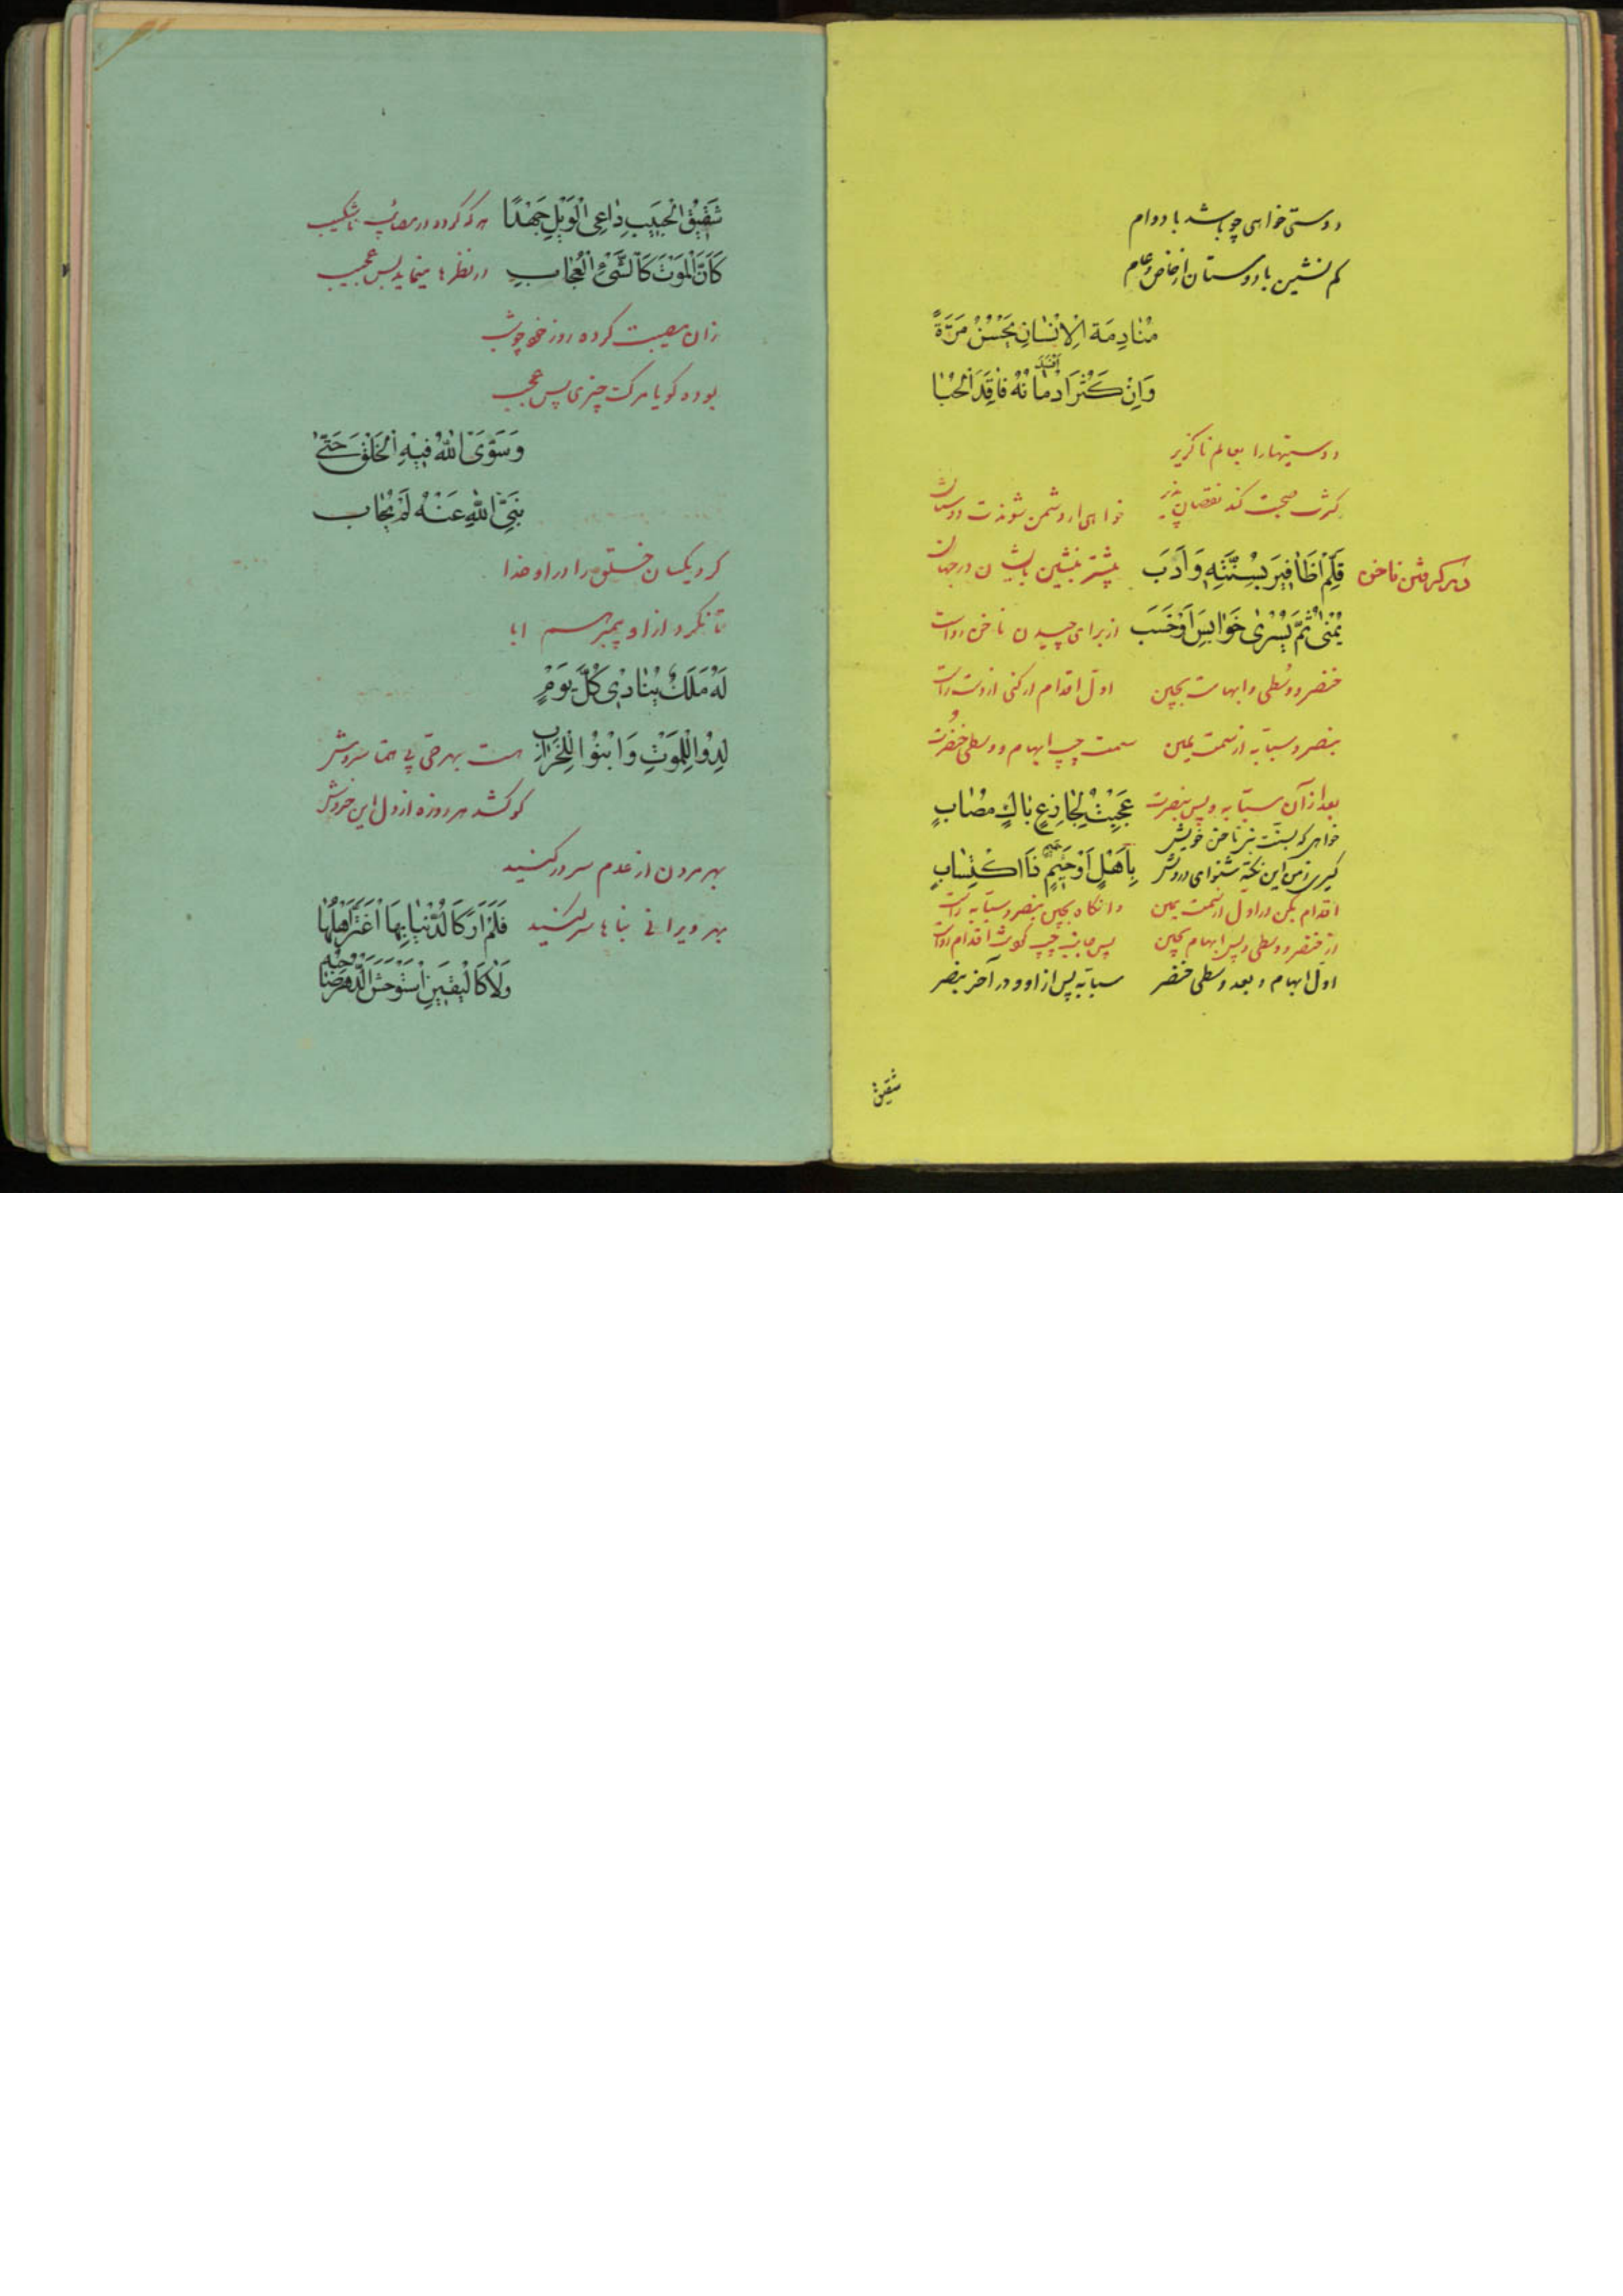 دوستی خواهی چو باشد با دوام
کم نشین با دوستان از خاص و عام
مُنَادِمَة الْاِنْسَانِ يَحْسُنُ مَرَّةً
وَاِنْ كَثُرَ ادْمَانُهُ
دوستیها را بعالم ناگزیر
کثرت صحبت کند نقصان پذیر خواهی ار دشمن شوندت دوستان
در گرفتن ناخن قَلِّمْ اَظَافِيرَ بِسُنَّتِهٖ وَاَدَب بیشتر بنشین در جهان
يُمْنٰى ثُمَّ يُسْرٰى خَوَابِسَ اَوْخَسَب از برای چیدن ناخن رواست
خنصر و وسطی و ابهامت بچین اول اقدام ار کنی از دست راست
بنصر و سبابه از سمت یمین سمت چپ ابهام و وسطی خنصرت
بعد از آن سبابه و پس بنصرت عَجِبْتُ لِجَازِعٍ بَاكٍ مُصَابٍ
خواهی که بسنت بنر ناخن خویش
گیری ز من این نکته شنو ای درویش بِاَهْلٍ اَوْ حَمِيمٍ ذَا اكْتِئَابٍ
اقدام بکن در اول از سمت یمین وانگاه بچین بنصر و سبابه راست
از خنصر و وسطی و پس ابهام بچین پس جانب چپ کوش اقدام رواست
اول ابهام و بعد وسطی خنصر سبابه پس از او و در آخر بنصر
شقیق
شَقِيقُ الْجَيْبِ دَاعِى الْوَيْلِ جَهْدًا هر که گردد در مصائب ناشکیب
كَاَنَّ الْمَوْتَ كَالشَّىْءِ الْعُجَابِ در نظرها مینماید بس عجیب
زان مصیبت کرده روز خود چو شب
بوده گویا مرگ چیزی پس عجب
وَسَوَّى اللّٰهُ فِيهِ الْخَلْقَ حَتّٰى
نَبِىُّ اللّٰهِ عَنْهُ لَمْ يُحَاب
کرد یکسان خلق را در او خدا
تا نکرد از او پیمبر هم ابا
لَهُ مَلَكٌ يُنَادِى كُلَّ يَوْمٍ
لِدُوا لِلْمَوْتِ وَابْنُوا لِلْخَرَابِ هست بهر حق پی همتا سروش
کو کشد هر روزه از دل این خروش
بهر مردن از عدم سر در کنید
بهر ویرانی بناها سر کنید فَلَمْ اَرَ كَالدُّنْيَا بِهَا اغْتَرَّ اَهْلُهَا
وَلَا كَالْيَقِينِ اسْتَوْحَشَ الدَّهْرَ صَاحِبُه